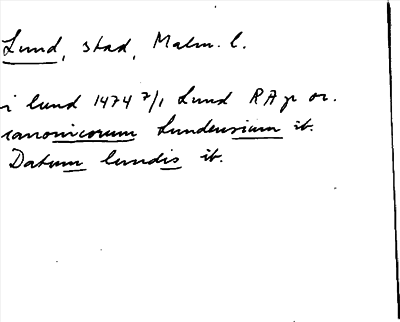 Lund, stad, Malm. l.
i lund 1474 7/1 Lund RAp or.
canonicorum Lundensium ib.
Datum lundis ib.